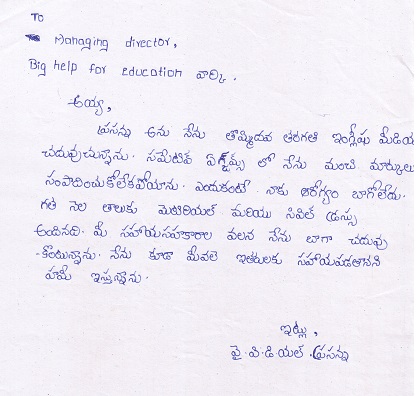 To
Managing director,
Big help for Education వార్కి.
అయ్యా,
ప్రసన్న అను నేను తొమ్మిదవ తరగతి ఇంగ్లీషు మీడియ
చదువుచున్నాను. సమేటివ ఏగ్జామ్స్ లో నేను మంచి మార్కులు
సంపాదించుకోలేకపోయాను. ఎందుకంటే నాకు ఆరోగ్యం బాగోలేదు.
గత నెల తాలుకు మెటిరియల్ మరియు సివిల్ డ్రస్సు
అందినది. మీ సహాయసహకారాల వలన నేను బాగా చదువు
-కొంటున్నాను. నేను కూడా మీవలె ఇతరులకు సహాయపడతానని
హామీ ఇస్తున్నాను.
ఇట్లు,
వై.వి.డి.యల్.ప్రసన్న